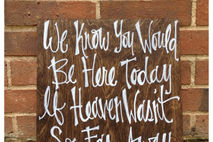 We Know You Would
Be Here Today
If Heaven Wasn't
So Far Away